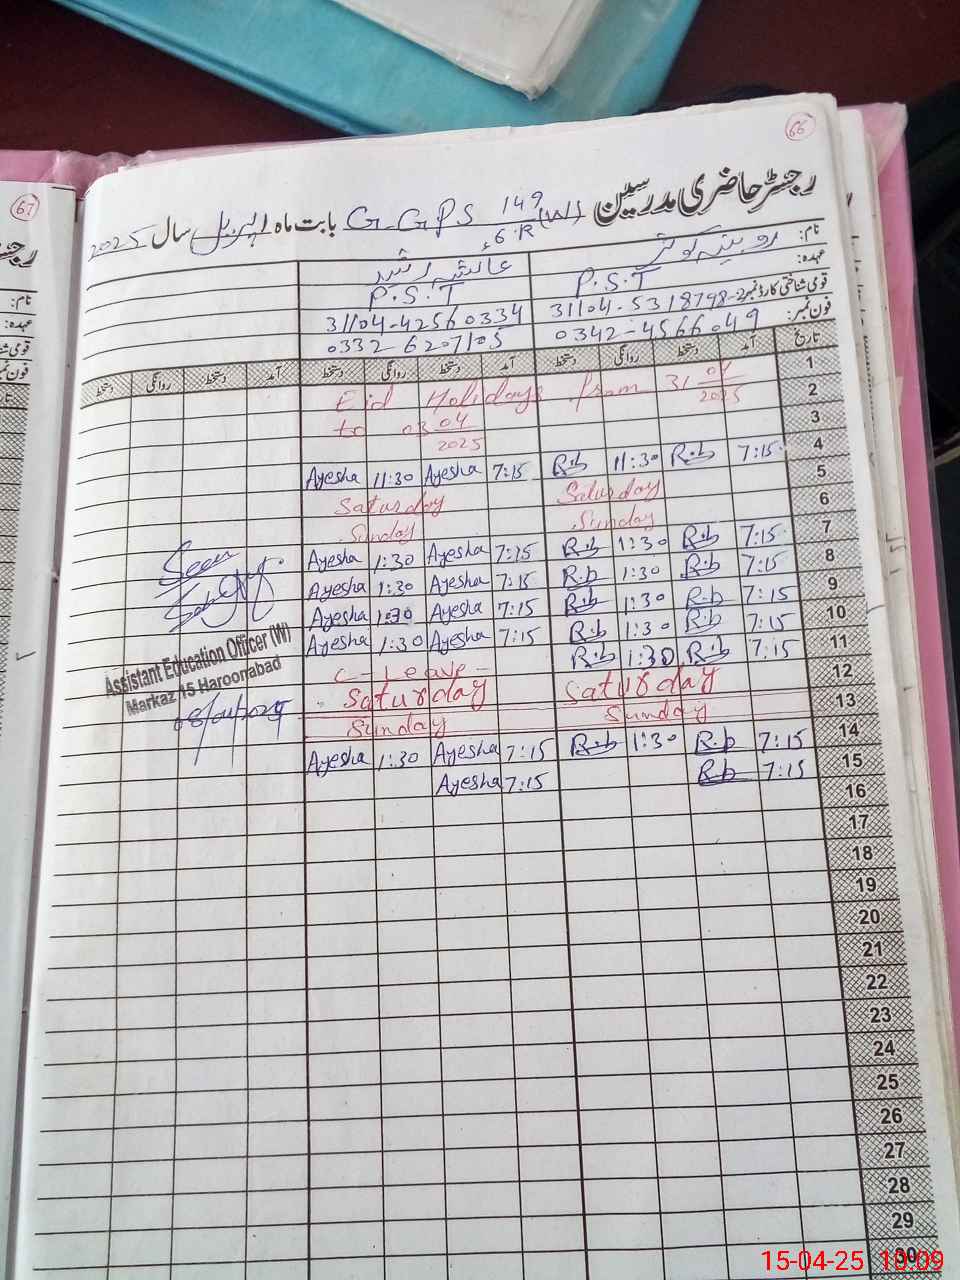 66
67
رجسٹر حاضری مدرسین G.G.P.S 149/6.R (W) بابت ماہ اپریل سال 2025ء
نام: روبینہ کوثر عائشہ رشید
عہدہ: P.S.T P.S.T
قومی شناختی کارڈ نمبر: 31104-5318798-2 31104-42560334
فون نمبر: 0342-4566049 0332-6207105
تاریخ آمد دستخط روانگی دستخط آمد دستخط روانگی دستخط آمد دستخط روانگی دستخط
1
2 Eid Holidays from 31/04/2025
3 to 03/04/2025
4 7:15 R.b 11:30 R.b 7:15 Ayesha 11:30 Ayesha
5 Saturday Saturday
6 Sunday Sunday
7 7:15 R.b 1:30 R.b 7:15 Ayesha 1:30 Ayesha
8 7:15 R.b 1:30 R.b 7:15 Ayesha 1:30 Ayesha
9 7:15 R.b 1:30 R.b 7:15 Ayesha 1:30 Ayesha
10 7:15 R.b 1:30 R.b 7:15 Ayesha 1:30 Ayesha
11 7:15 R.b 1:30 R.b C-Leave
12 Saturday Saturday
13 Sunday Sunday
14 7:15 R.b 1:30 R.b 7:15 Ayesha 1:30 Ayesha
15 7:15 R.b 7:15 Ayesha
16
17
18
19
20
21
22
23
24
25
26
27
28
29
30
Seen
Assistant Education Officer (W)
Markaz 15 Haroonabad
08/04/2025
رجسٹر
نام:
عہدہ:
قومی
فون نمبر
15-04-25 10:09